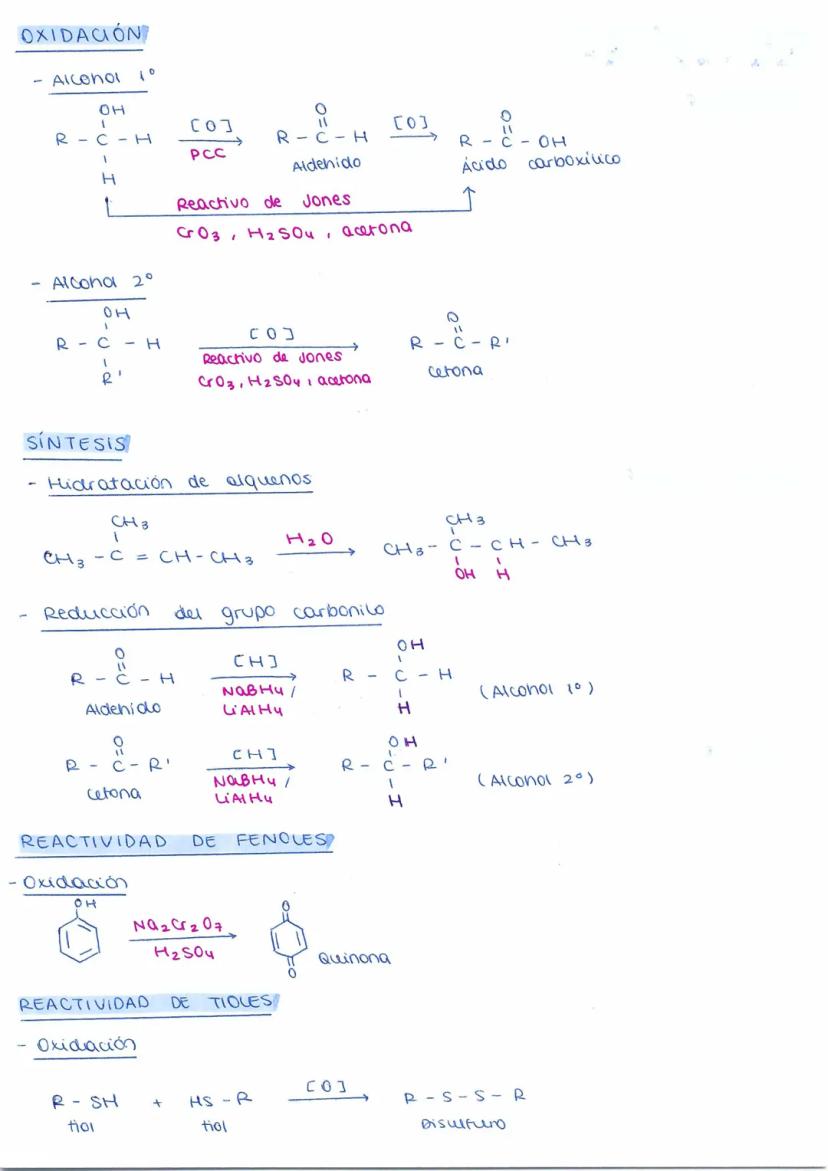 OXIDACIÓN
- Alcohol 1º
OH
R - C - H
H
[O]
PCC
O
R - C - H
Aldehido
[O]
O
R - C - OH
Ácido carboxílico
Reactivo de Jones
CrO3, H2SO4, acetona
- Alcohol 2º
OH
R - C - H
R'
[O]
Reactivo de Jones
CrO3, H2SO4, acetona
O
R - C - R'
Cetona
SÍNTESIS
- Hidratación de alquenos
CH3
CH3 - C = CH - CH3
H2O
CH3
CH3 - C - CH - CH3
OH H
- Reducción del grupo carbonilo
O
R - C - H
Aldehido
[H]
NaBH4 /
LiAlH4
OH
R - C - H
H
(Alcohol 1º)
O
R - C - R'
Cetona
[H]
NaBH4 /
LiAlH4
OH
R - C - R'
H
(Alcohol 2º)
REACTIVIDAD DE FENOLES
- Oxidación
OH
Na2Cr2O7
H2SO4
O
O
Quinona
REACTIVIDAD DE TIOLES
- Oxidación
R - SH + HS - R [O] R - S - S - R
tiol tiol Disulfuro